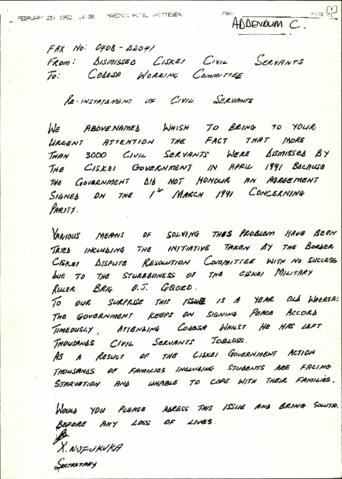 FEBRUARY 25, 1992
ADDENDUM C.
FAX NO: 0408-22041
FROM: DISMISSED CISKEI CIVIL SERVANTS
TO: CODESA WORKING COMMITTEE
RE-INSTATEMENT OF CIVIL SERVANTS
WE ABOVENAMED WHISH TO BRING TO YOUR
URGENT ATTENTION THE FACT THAT MORE
THAN 3000 CIVIL SERVANTS WERE DISMISSED BY
THE CISKEI GOVERNMENT IN APRIL 1991 BECAUSE
THE GOVERNMENT DID NOT HONOUR AN AGREEMENT
SIGNED ON THE 1st MARCH 1991 CONCERNING
PARITY.
VARIOUS MEANS OF SOLVING THIS PROBLEM HAVE BEEN
TRIED INCLUDING THE INITIATIVE TAKEN BY THE BORDER
CISKEI DISPUTE RESOLUTION COMMITTEE WITH NO SUCCESS
DUE TO THE STUBBORNESS OF THE CISKEI MILITARY
RULER BRIG O.J. GQOZO.
TO OUR SURPRISE THIS ISSUE IS A YEAR OLD WHEREAS
THE GOVERNMENT KEEPS ON SIGNING PEACE ACCORD
TIMEOUSLY, ATTENDING CODESA WHILST HE HAS LEFT
THOUSANDS CIVIL SERVANTS JOBLESS.
AS A RESULT OF THE CISKEI GOVERNMENT ACTION
THOUSANDS OF FAMILIES INCLUDING STUDENTS ARE FACING
STARVATION AND UNABLE TO COPE WITH THEIR FAMILIES.
WOULD YOU PLEASE ADRESS THIS ISSUE AND BRING SOLUTIO
BEFORE ANY LOSS OF LIVES.
X. NOFUKUKA
SECRETARY